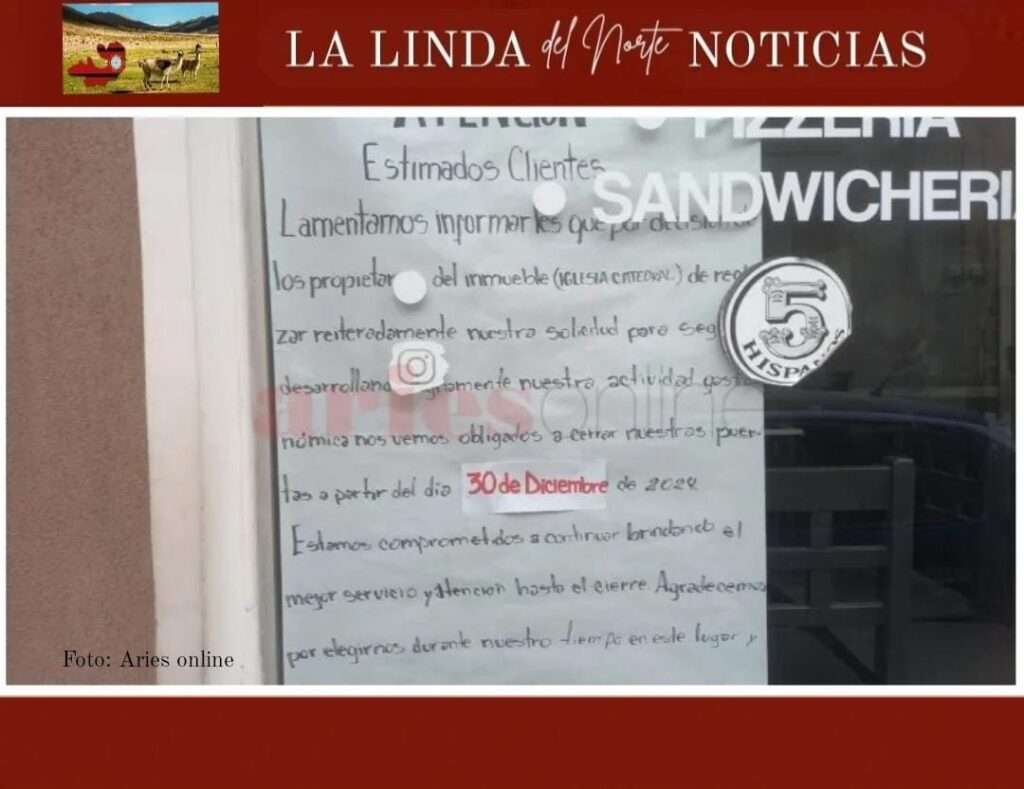 LA LINDA del Norte NOTICIAS
ATENCION
PIZZERIA
Estimados Clientes
SANDWICHERI
Lamentamos informarles que por decision de
los propietar del inmueble (IGLESIA CATEDRAL) de rec
5
HISPANOS
zar reiteradamente nuestra solicitud para seg
desarrollando nuestra actividad gastro
ariesonline
nómica nos vemos obligados a cerrar nuestras puer-
tas a partir del dia 30 de Diciembre de 2024
Estamos comprometidos a continuar brindando el
mejor servicio y Atencion hasta el cierre. Agradecemos
por elegirnos durante nuestro tiempo en este lugar y
Foto: Aries online